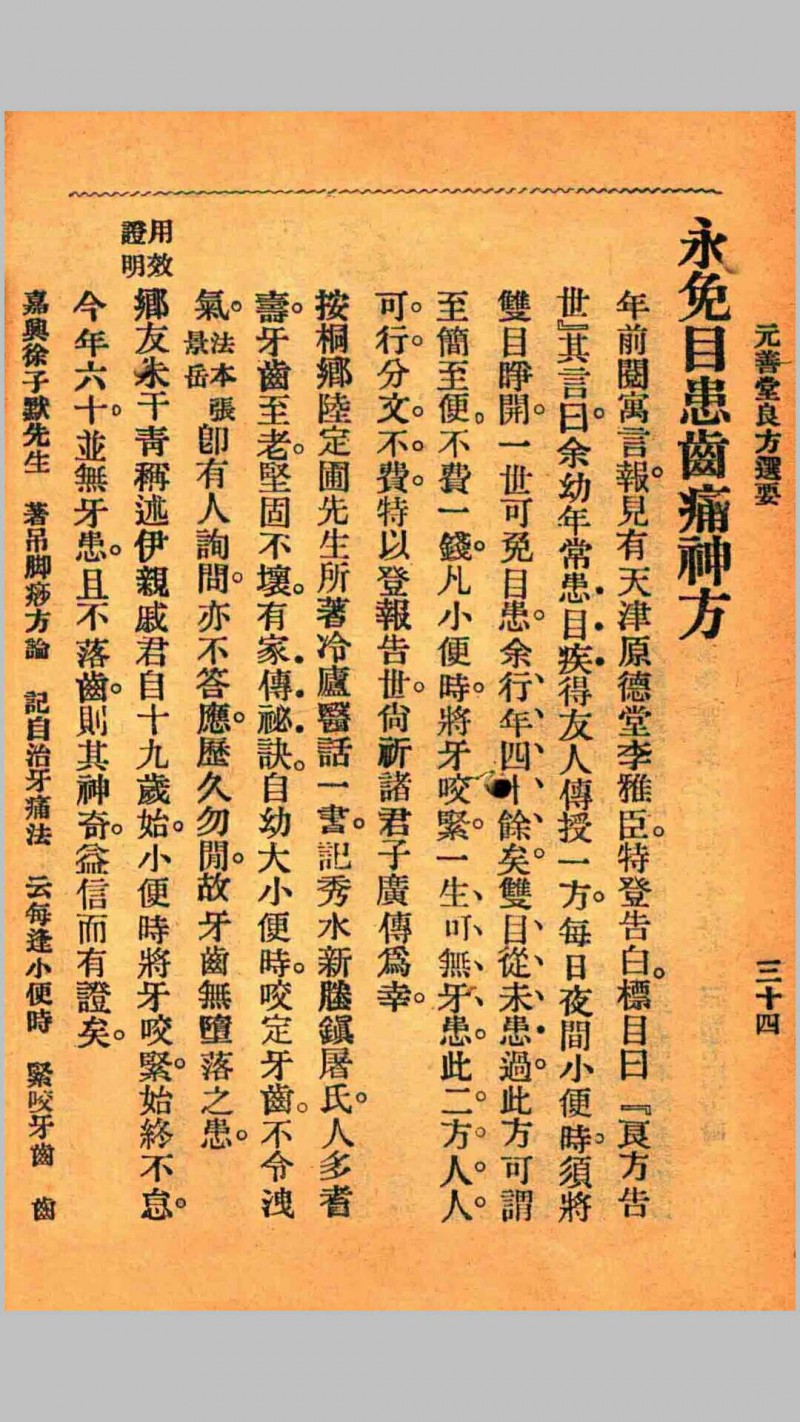 元善堂良方選要
三十四
永免目患齒痛神方
年前閱寓言報。見有天津原德堂李雅臣。特登告白。標目曰『良方告
世』其言曰。余幼年常患目疾。得友人傳授一方。每日夜間小便時。須將
雙目睜開。一世可免目患。余行年四十餘矣。雙目從未患過。此方可謂
至簡至便。不費一錢。凡小便時。將牙咬緊。一生可無牙患。此二方。人人
可。行。分文。不。費。特以登報告世。尙祈諸君子廣傳爲幸。
按桐鄉陸定圃先生所著冷廬醫話一書。記秀水新塍鎭屠氏。人多耆
壽。牙齒至老。堅固不壞。有家傳祕訣。自幼大小便時。咬定牙齒。不令洩
氣。法本張景岳卽有人詢問。亦不答應。歷久勿閒。故牙齒無墮落之患。
用效證明
鄉友朱干靑稱述伊親戚君自十九歲始。小便時將牙咬緊。始終不怠。
今年六十。並無牙患。且不落齒。則其神奇。益信而有證矣。
嘉興徐子默先生　著吊脚痧方論　記自治牙痛法　云每逢小便時　緊咬牙齒　齒